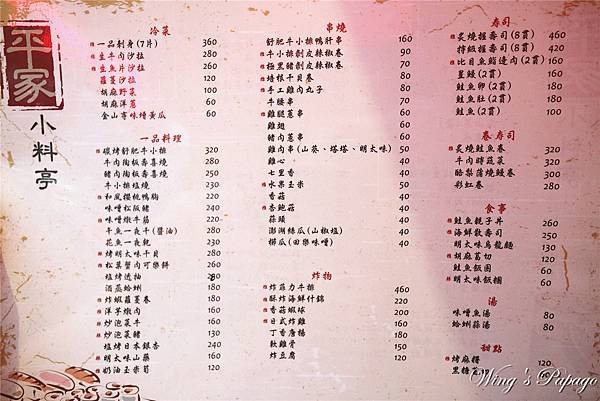 平家
小料亭
冷菜
一品刺身(7片) 360
生牛肉沙拉 280
生魚片沙拉 260
蘿蔓沙拉 120
胡麻野菜 100
胡麻洋蔥 60
金山寺味增黃瓜 60
一品料理
碳烤舒肥牛小排 320
牛肉陶板壽喜燒 280
豬肉陶板壽喜燒 250
牛小排塩燒 230
和風櫻桃鴨胸 220
味噌松阪豬 240
味噌燉牛筋 220
干魚一夜干(醬油) 280
花魚一夜乾 230
烤明太味干貝 280
松葉蟹肉可樂餅 260
塩烤透抽 280
酒蒸蛤蜊 180
炸蝦蘿蔓卷 180
洋芋燉肉 160
炒泡菜牛 160
炒泡菜豬 130
塩烤日本銀杏 240
明太味山藥 160
奶油玉米筍 120
串燒
舒肥牛小排鴨肝串 160
牛小排剝皮辣椒卷 90
極黑豬剝皮辣椒卷 70
培根干貝卷 80
手工雞肉丸子 80
牛腰串 70
雞腿蔥串 60
雞翅 60
豬肉蔥串 50
雞肉串(山葵、塔塔、明太味) 50
雞心 40
七里香 40
水果玉米 50
香菇 40
杏鮑菇 40
蒜頭 40
澎湖絲瓜(山椒塩) 40
櫛瓜(田樂味噌) 40
炸物
炸菲力牛排 460
酥炸海鮮什錦 220
香菇蝦球 200
日式炸雞 160
丁香唐揚 160
軟雞骨 150
炸豆腐 120
壽司
炙燒握壽司(8貫) 460
特級握壽司(8貫) 420
比目魚鰭邊肉(2貫) 160
星鰻(2貫) 160
鮭魚卵(2貫) 180
鮭魚肚(2貫) 120
鮭魚(2貫) 100
卷壽司
炙燒鮭魚卷 320
牛肉時蔬卷 320
酪梨蒲燒鰻卷 300
彩虹卷 280
食事
鮭魚親子丼 260
海鮮散壽司 250
明太味烏龍麵 130
胡麻葛切 120
鮭魚飯團 60
明太味飯糰 60
湯
味噌魚湯 80
蛤蜊蒜湯 80
甜點
烤麻糬 120
黑糖 80
Wing's Papago